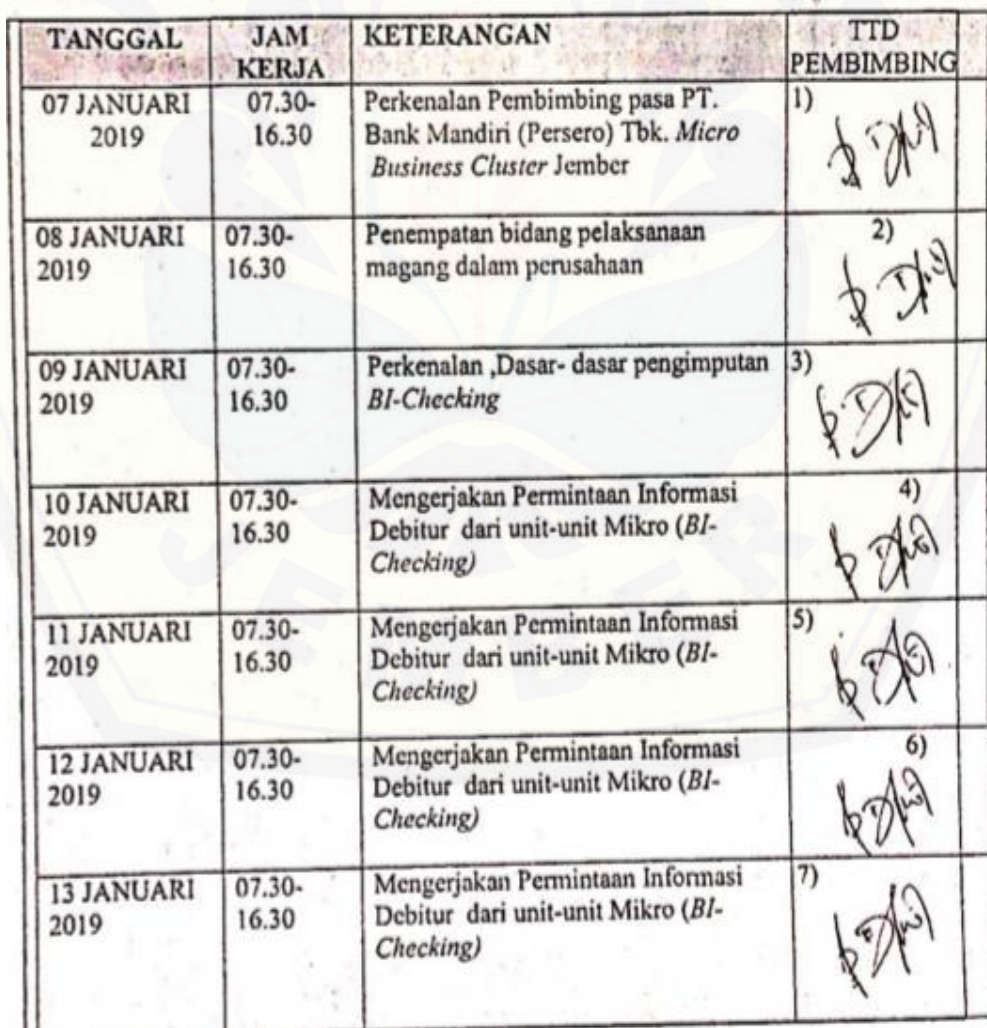 TANGGAL JAM KERJA KETERANGAN TTD PEMBIMBING
07 JANUARI 2019
07.30-
16.30
Perkenalan Pembimbing pasa PT.
Bank Mandiri (Persero) Tbk. Micro
Business Cluster Jember
1)
08 JANUARI
2019
07.30-
16.30
Penempatan bidang pelaksanaan
magang dalam perusahaan
2)
09 JANUARI
2019
07.30-
16.30
Perkenalan ,Dasar- dasar pengimputan
BI-Checking
3)
10 JANUARI
2019
07.30-
16.30
Mengerjakan Permintaan Informasi
Debitur dari unit-unit Mikro (BI-
Checking)
4)
11 JANUARI
2019
07.30-
16.30
Mengerjakan Permintaan Informasi
Debitur dari unit-unit Mikro (BI-
Checking)
5)
12 JANUARI
2019
07.30-
16.30
Mengerjakan Permintaan Informasi
Debitur dari unit-unit Mikro (BI-
Checking)
6)
13 JANUARI
2019
07.30-
16.30
Mengerjakan Permintaan Informasi
Debitur dari unit-unit Mikro (BI-
Checking)
7)